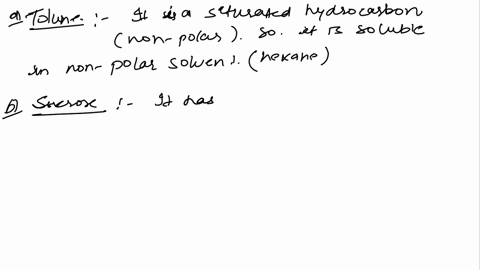 a) Tolune :- It is a saturated hydrocarbon
(non-polar). So. it is soluble
in non-polar solvent. (hexane)
b) Sucrose :- It has